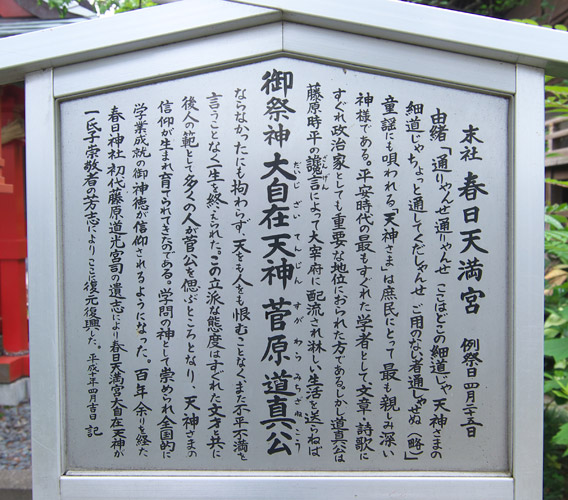 末社 春日天満宮 例祭日 四月二十五日
由緒「通りゃんせ通りゃんせ ここはどこの細道じゃ 天神さまの
細道じゃちょっと通してくだしゃんせ ご用のない者通しゃせぬ(略)」
童謡にも唄われる「天神さま」は庶民にとって最も親しみ深い
神様である。平安時代の最もすぐれた学者として、文章・詩歌に
すぐれ政治家としても重要な地位におられた方である。しかし道真公は
藤原時平の讒言によって大宰府に配流され淋しい生活を送らねば
ざんげん
御祭神 大自在天神 菅原道真公
だいじざいてんじん すがわらみちざねこう
ならなかったにも拘わらず、天をも人をも恨むことなくまた不平不満を
言うことなく一生を終えられた。この立派な態度はすぐれた文才と共に
後人の範として多くの人が菅公を偲ぶところとなり、天神さまの
信仰が生まれ育てられてきたのである。学問の神として崇められ全国的に
学業成就の御神徳が信仰されるようになった。百年余りを経た
春日神社初代藤原道光宮司の遺志により春日天満宮大自在天神が
一氏子崇敬者の芳志によりここに復元復興した。平成十年四月吉日 記